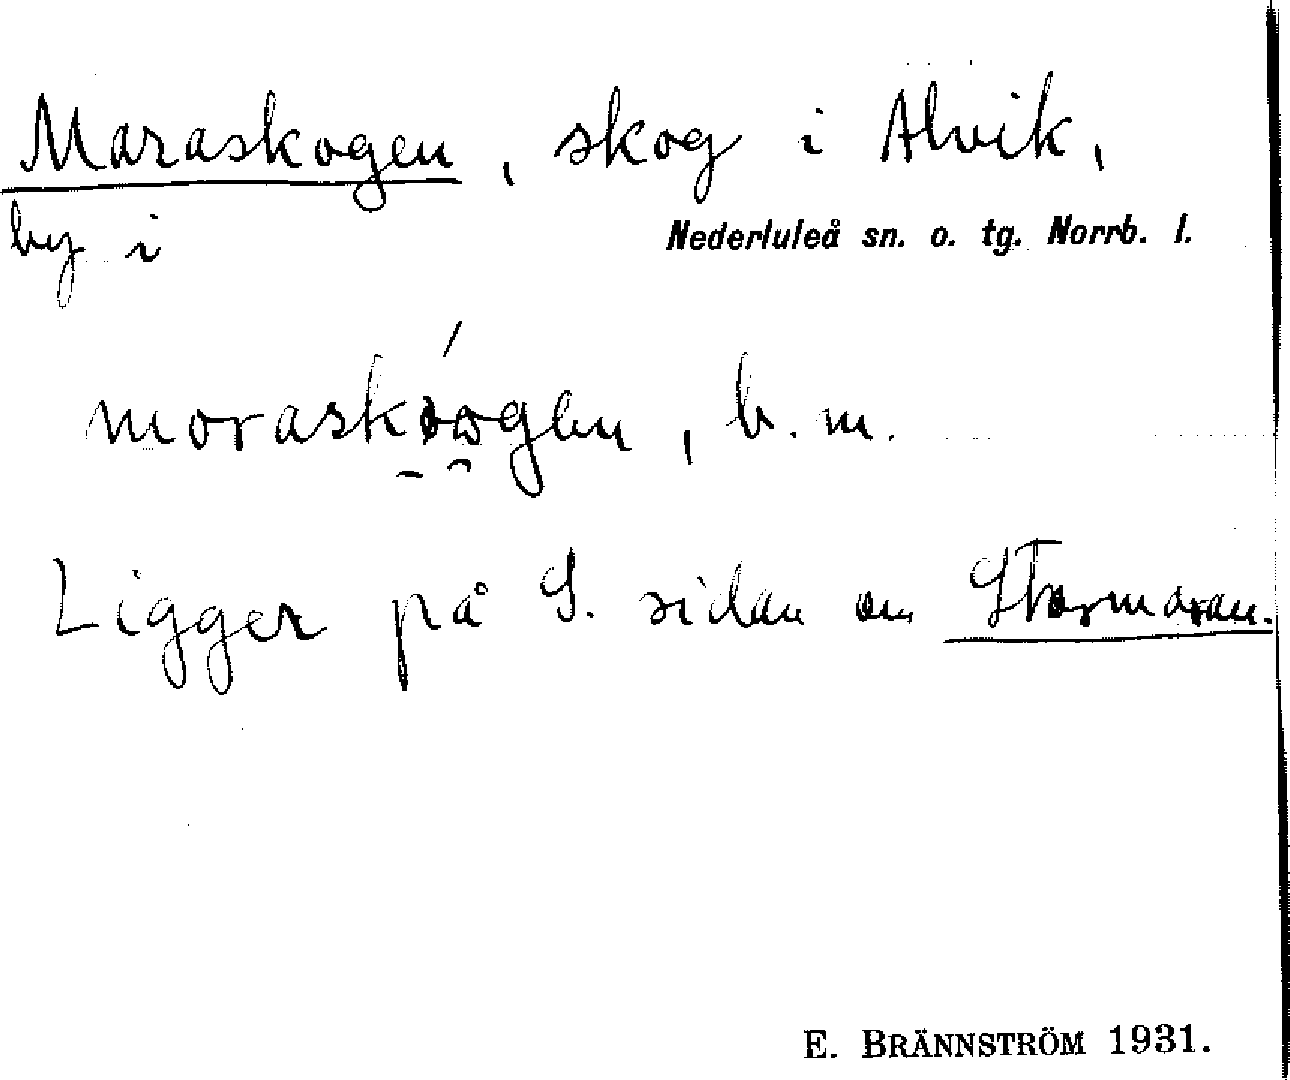 Maraskogen, skog i Alvik,
by i Nederluleå sn. o. tg. Norrb. l.
, b. m.
Ligger på S. sidan om Stormaran.
E. BRÄNNSTRÖM 1931.